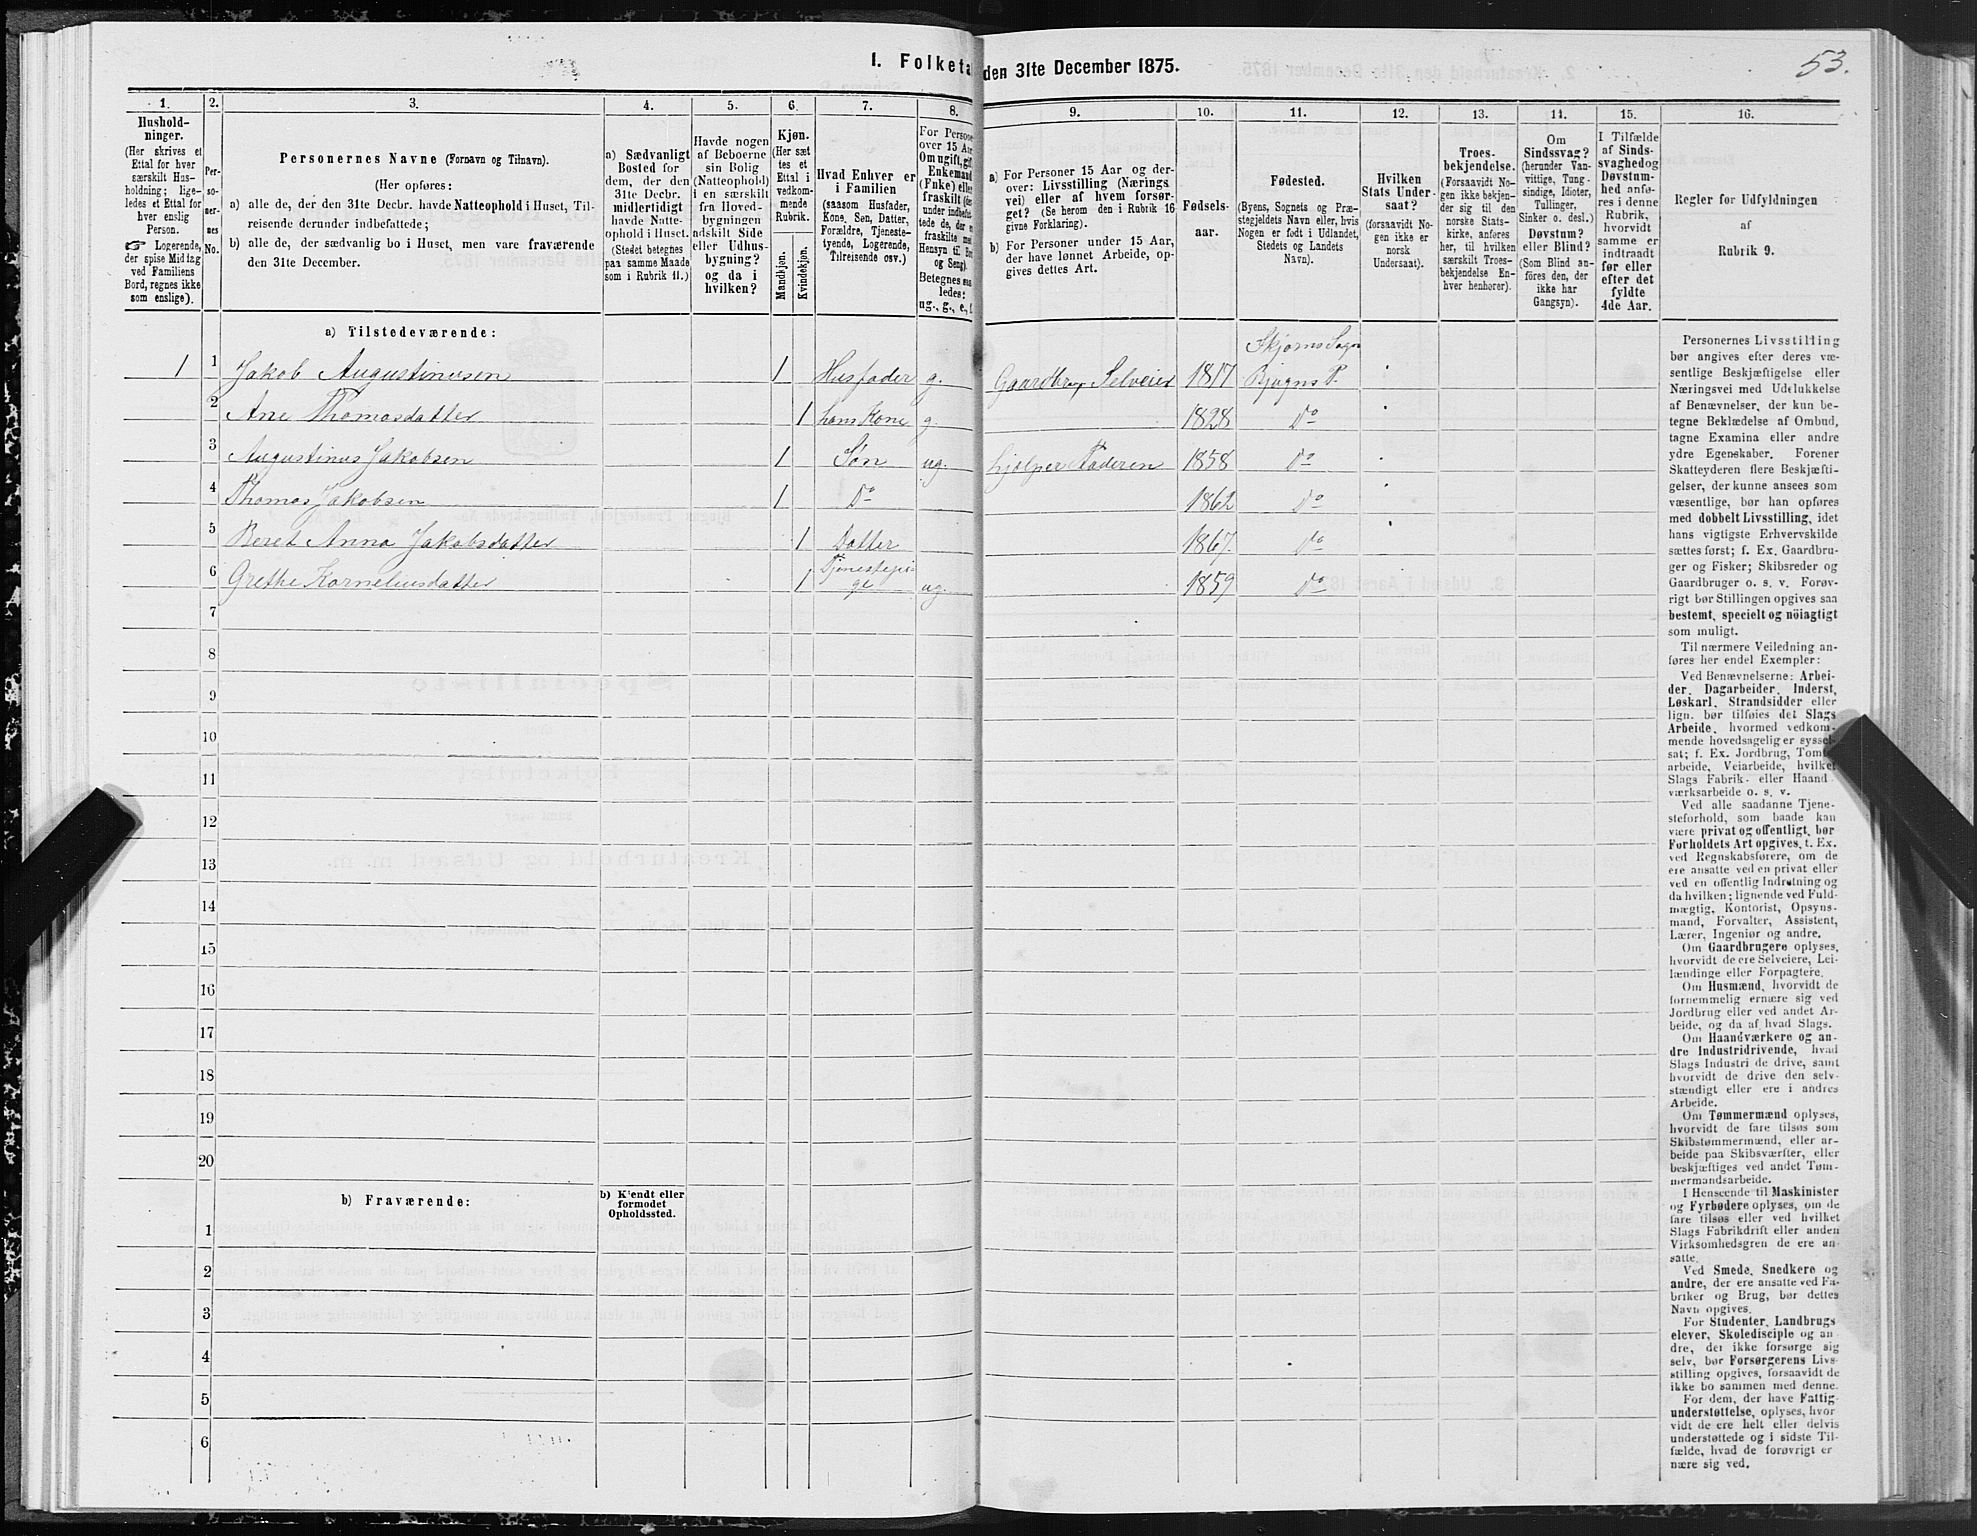 1. Folketa
den 31te December 1875.
53.
1.
2.
3.
4.
5.
6.
7.
8.
9.
10.
11.
12.
13.
14.
15.
16.
Hushold-
ninger.
(Her skrives et
Ettal for hver
særskilt Hus-
holdning; lige-
ledes et Ettal for
hver enslig
Person.
☞ Logerende,
der spise Middag
ved Familiens
Bord, regnes ikke
som enslige).
Per-
so-
ner-
nes
No.
Personernes Navne (Fornavn og Tilnavn).
(Her opføres:
a) alle de, der den 31te Decbr. havde Natteophold i Huset, Til-
reisende derunder indbefattede;
b) alle de, der sædvanlig bo i Huset, men vare fraværende
den 31te December.
a) Sædvanligt
Bosted for
dem, der den
31te Decbr.
midlertidigt
havde Natte-
ophold i Huset.
(Stedet betegnes
paa samme Maade
som i Rubrik 11.)
Havde nogen
af Beboerne
sin Bolig
(Natteophold)
i en særskilt
fra Hoved-
bygningen
adskilt Side
eller Udhus-
bygning?
og da i
hvilken?
Kjøn.
(Her sæt
tes et
Ettal i
vedkom-
mende
Rubrik.
Mandkjøn.
Kvindekjøn.
Hvad Enhver er
i Familien
(saasom Husfader,
Kone, Søn, Datter,
Forældre, Tjeneste-
tyende, Logerende,
Tilreisende osv.)
For Persone
over 15 Aa
Om ugift, gif
Enkemand
(Enke) elle
fraskilt (de
under indbefat-
tede de, der e
fraskilte med
Hensyn til Bo
og Seng).
Betegnes saa
ledes:
ug., g., e., f.
a) For Personer 15 Aar og der-
over: Livsstilling (Nærings
vei) eller af hvem forsør-
get? (Se herom den i Rubrik 16
givne Forklaring).
b) For Personer under 15 Aar,
der have lønnet Arbeide, op-
gives dettes Art.
Fødsels-
aar.
Fødested.
(Byens, Sognets og Præ-
stegjeldets Navn eller, hvis
Nogen er født i Udlandet,
Stedets og Landets
Navn).
Hvilken
Stats Under-
saat?
(forsaavidt No-
gen ikke er
norsk
Undersaat).
Troes-
bekjendelse.
(Forsaavidt No-
gen ikke bekjen-
der sig til den
norske Stats-
kirke, anføres
her, til hvilken
særskilt Troes-
bekjendelse En-
hver henhører).
Om
Sindssvag?
(herunder Van-
vittige, Tung-
sindige, Idioter,
Tullinger,
Sinker o. desl.)
Døvstum?
eller Blind?
(Som Blind an-
føres den, der
ikke har
Gangsyn).
I Tilfælde
af Sinds-
svaghed og
Døvstum-
hed anfø-
res i denne
Rubrik,
hvorvidt
samme er
indtraadt
før eller
efter det
fyldte
4de Aar.
Regler for Udfyldningen
af
Rubrik 9.
a) Tilstedeværende:
Skjørns Sogn
1 1 Jakob Augustinusen 1 Husfader g. Gaardbr. Selveier 1817 Bjugns P.
2 Ane Thomasdatter 1 hans Kone g. 1828 Do
3 Augustinus Jakobsen 1 Søn ug. hjelper Faderen 1858 Do
4 Thomas Jakobsen 1 Do 1862 Do
5 Beret Anna Jakobsdatter 1 Datter 1867. Do
6 Grethe Korneliusdatter 1 Tjenestepi-
ge ug. 1859 Do
7
8
9
10
11
12
13
14
15
16
17
18
19
20
b) Fraværende:
b) Kjendt eller
formodet
Opholdssted.
1
2
3
4
5
6
Personernes Livsstilling
bør angives efter deres væ-
sentlige Beskjæftigelse eller
Næringsvei med Udelukkelse
af Benævnelser, der kun be-
tegne Beklædelse af Ombud,
tagne Examina eller andre
ydre Egenskaber. Forener
Skatteyderen flere Beskjæfti-
gelser, der kunne ansees som
væsentlige, bør han opføres
med dobbelt Livsstilling, idet
hans vigtigste Erhvervskilde
sættes først; f. Ex. Gaardbru-
ger og Fisker; Skibsreder og
Gaardbruger o. s. v. Forøv-
rigt bør Stillingen opgives saa
bestemt, specielt og nöiagtigt
som muligt.
Til nærmere Veiledning an-
føres her endel Exempler:
Ved Benævnelserne: Arbei-
der, Dagarbeider, Inderst,
Løskarl, Strandsidder eller
lign. bør tilføies det Slags
Arbeide, hvormed vedkom-
mende hovedsagelig er syssel-
sat; f. Ex. Jordbrug, Tomte-
arbeide, Veiarbeide, hvilket
Slags Fabrik- eller Haand-
værksarbeide o. s. v.
Ved alle saadanne Tjene-
steforhold, som baade kan
være privat og offentligt, bør
Forholdets Art opgives, f. Ex.
ved Regnskabsførere, om de
ere ansatte ved en privat eller
ved en offentlig Indretning og
da hvilken; lignende ved Fuld-
mægtig, Kontorist, Opsyns-
mand, Forvalter, Assistent,
Lærer, Ingeniør og andre.
Om Gaardbrugere oplyses,
hvorvidt de ere Selveiere, Lei-
lændinge eller Forpagtere.
Om Husmænd, hvorvidt de
fornemmelig ernære sig ved
Jordbrug eller ved andet Ar-
beide, og da af hvad Slags.
Om Haandværkere og an-
dre Industridrivende, hvad
Slags Industri de drive, samt
hvorvidt de drive den selv-
stændigt eller ere i andres
Arbeide.
Om Tømmermænd oplyses,
hvorvidt de fare tilsøs som
Skibstømmermænd, eller ar-
beide paa Skibsværfter, eller
beskjæftiges ved andet Tøm-
mermandsarbeide.
I Henseende til Maskinister
og Fyrbødere oplyses, om de
fare tilsøs eller ved hvilket
Slags Fabrikdrift eller anden
Virksomhedsgren de ere an-
satte.
Ved Smede, Snedkere og
andre, der ere ansatte ved Fa-
briker og Brug, bør dettes
Navn opgives.
For Studenter, Landbrugs
elever, Skoledisciple og an
dre, der ikke forsørge sig
selv, bør Forsørgerens Livs-
stilling opgives, forsaavidt de
ikke bo sammen med denne.
For dem, der have Fattig-
understøttelse, oplyses, hvor
vidt de ere helt eller delvis
understøttede og i sidste Til-
fælde, hvad de forøvrigt er
nære sig ved.